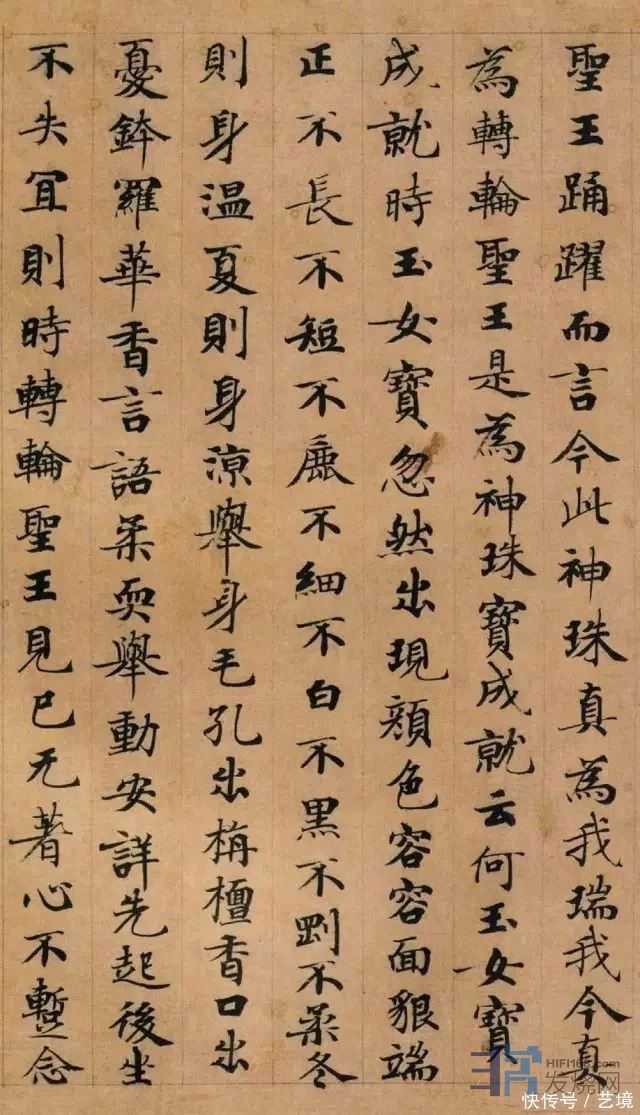 聖王踊躍而言今此神珠真為我瑞我今真
為轉輪聖王是為神珠寶成就云何玉女寶
成就時玉女寶忽然出現顏色容容面貌端
正不長不短不麁不細不白不黑不剛不柔冬
則身温夏則身涼舉身毛孔出栴檀香口出
憂鉢羅華香言語柔耎舉動安詳先起後坐
不失冝則時轉輪聖王見已无著心不蹔念
HIFI168.com
发烧网
快传号/艺境